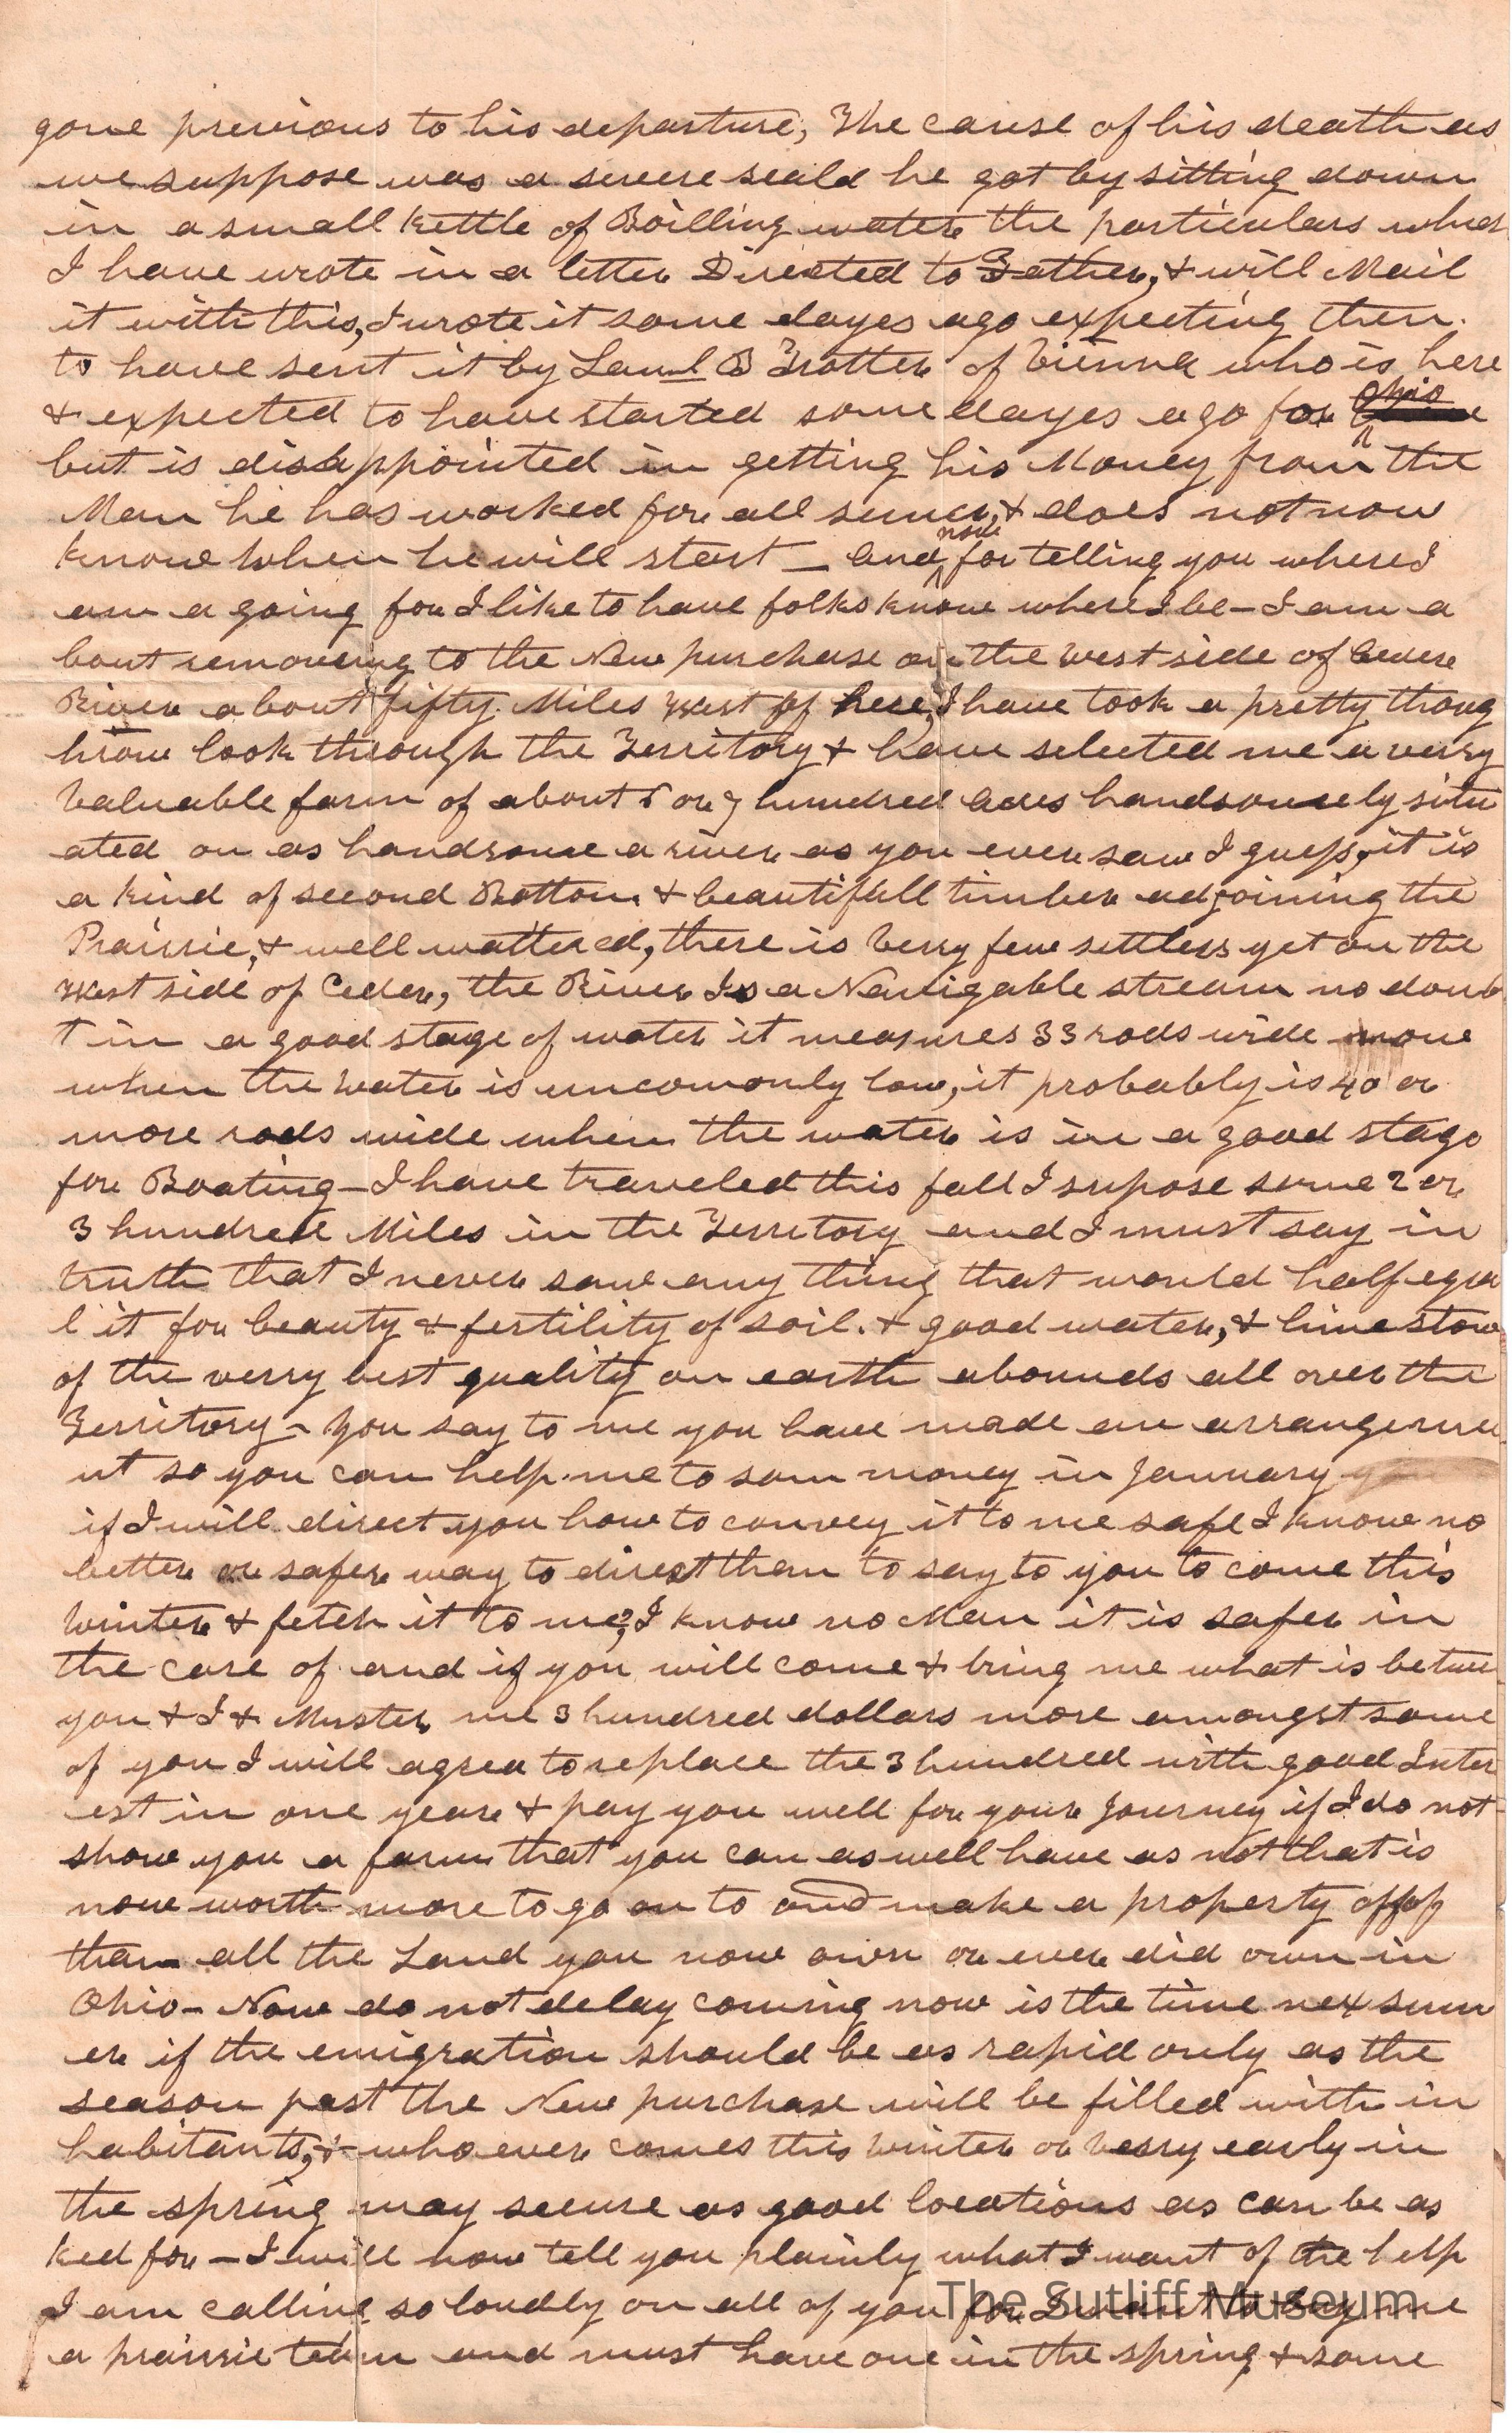 gone previous to his departure, The cause of his death as
we suppose was a severe scald he got by sitting down
in a small kettle of Boilling water the particulars which
I have wrote in a letter Directed to Father, & will Mail
it with this, I wrote it some dayes ago expecting then
to have sent it by Saml B Trotter of Vienna who is here
& expected to have started some dayes ago for Ohio
but is disappointed in getting his Money from the
Man he has worked for all sumer, & does not now
know when he will start — and now for telling you where I
am a going for I like to have folks know where I be — I am a
bout removeing to the New purchase on the west side of Ceder
River about fifty Miles West of here, I have took a pretty thoug
hrow look through the Territory & have selected me a verry
valuable farm of about or 7 hundred acres handsomely situ
ated on as handsome a river as you ever saw I guess, it is
a kind of second Bottom & beautifull timber adjoining the
Prairie, & well wattered, there is verry few settlers yet on the
West side of Ceder, the River Is a Navigable stream no doub
t in a good stage of water it measures 33 rods wide now
when the water is uncomonly low, it probably is 40 or
more rods wide when the water is in a good stage
for Boating — I have traveled this fall I supose some 2 or
3 hundred Miles in the Territory and I must say in
truth that I never saw any thing that would half equa
l it for beauty & fertility of soil. & good water, & lime stone
of the verry best quality on earth abounds all over the
Territory — You say to me you have made an arrangeme
nt so you can help me to som money in January
if I will direct you how to convey it to me safe I know no
better or safer way to direct than to say to you to come this
winter & fetch it to me, I know no Man it is safer in
the care of and if you will come & bring me what is betwen
you & I & Muster me 3 hundred dollars more amongst some
of you I will agree to replace the 3 hundred with good Inter
est in one year & pay you well for your Journey if I do not
show you a farm that you can as well have as not that is
now worth more to go on to and make a property off of
than all the Land you now own or ever did own in
Ohio — Now do not delay coming now is the time nex sum
er if the emigration should be as rapid only as the
season past the New purchase will be filled with in
habitants, & who ever comes this winter or verry early in
the spring may secure as good locations as can be as
ked for — I will now tell you plainly what I want of the help
I am calling so loudly on all of you for I want to buy me
a prairie team and must have one in the spring & some
The Sutliff Museum